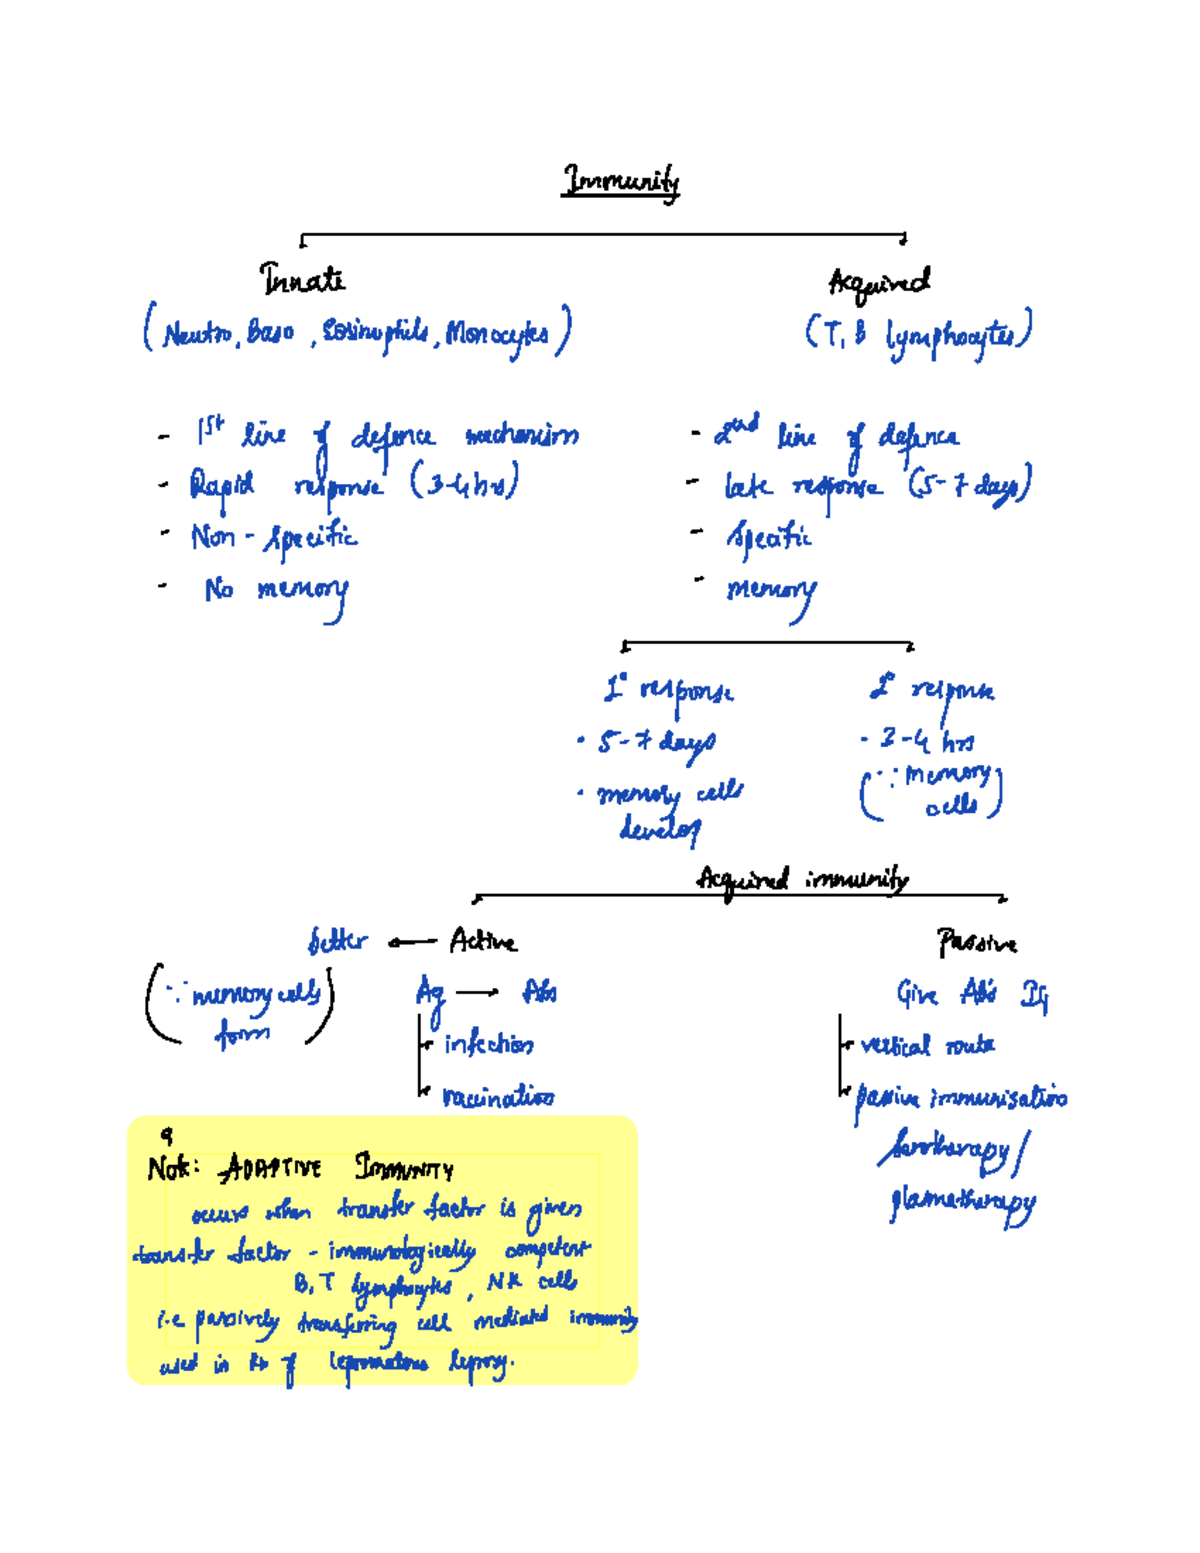 Immunity
Innate
(Neutro, Baso, Eosinophils, Monocytes)
- 1st line of defence mechanism
- Rapid response (3-4 hrs)
- Non-specific
- No memory
Acquired
(T, B lymphocytes)
- 2nd line of defence
- late response (5-7 days)
- specific
- memory
1° response
• 5-7 days
• memory cells
develop
2° response
- 3-4 hrs
(∵ memory
cells)
Acquired immunity
better ← Active
(∵ memory cells
form)
Ag → Abs
infection
vaccination
Passive
Give Ab's IG
vertical route
passive immunisation
serotherapy/
plasmatherapy
Note: ADAPTIVE IMMUNITY
occurs when transfer factor is given
transfer factor - immunologically competent
B, T lymphocytes, NK cells
i.e passively transferring cell mediated immunity
used in Rx of lepromatous leprosy.